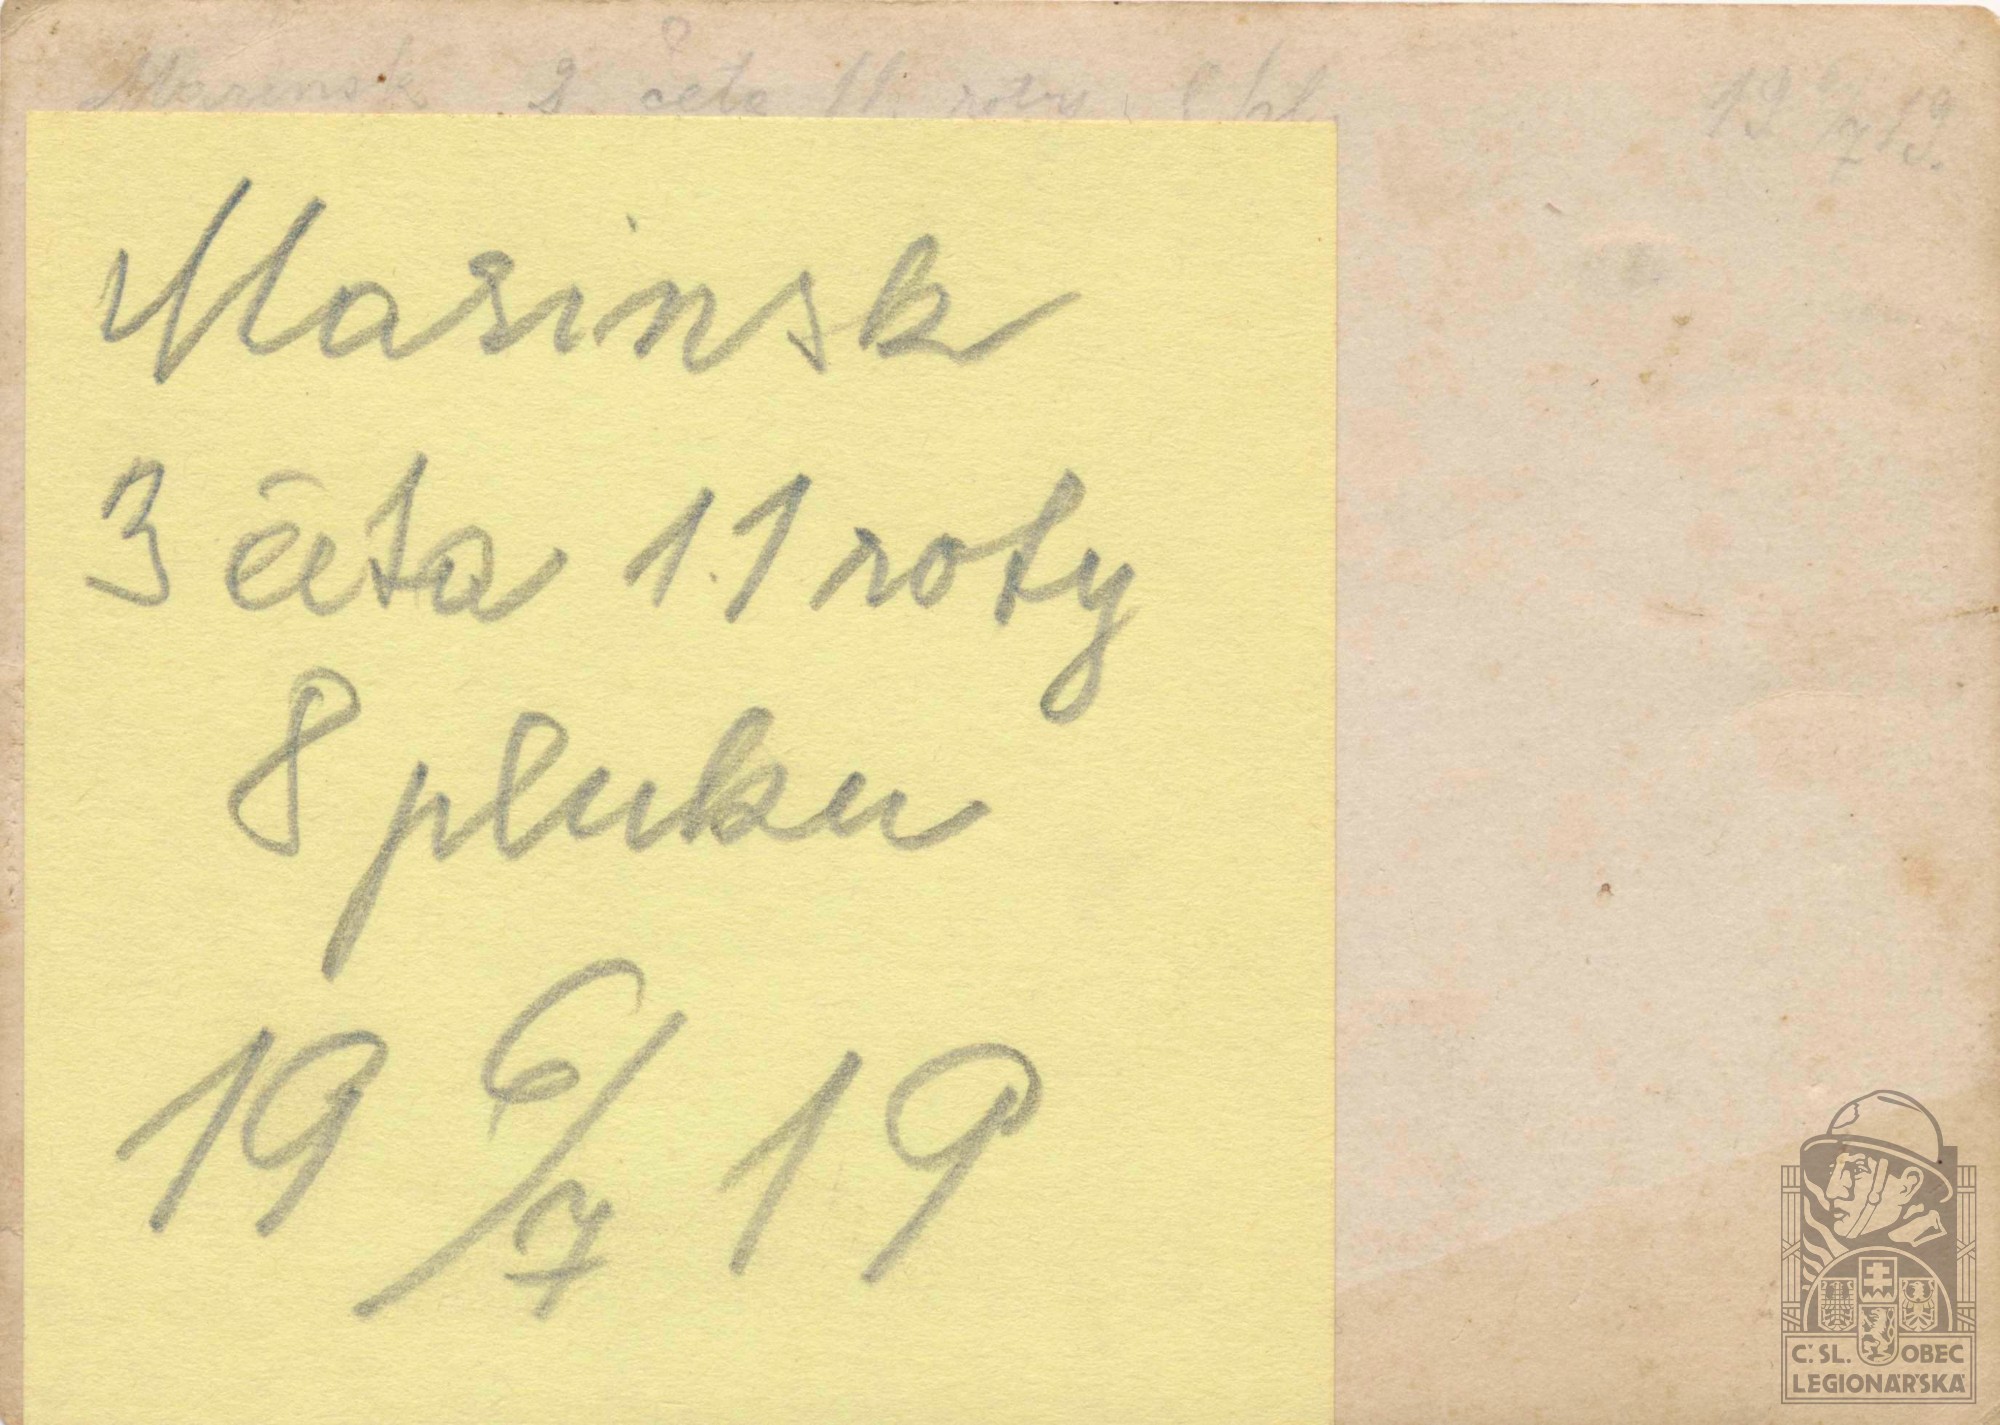 Marinsk 3 četa 11. roty, 8 pl. 19 6/7 19.
Marinsk
3 četa 11 roty
8 pluku
19 6/7 19
Č.SL. OBEC
LEGIONÁŘSKÁ